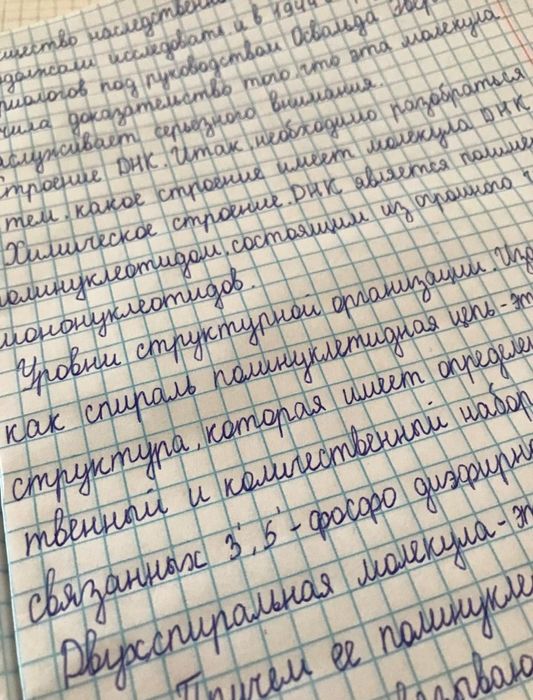 щество наследствен
должали исследовать и в 1944
риологов под руководством Освальда Эвер
чила доказательство того, что эта молекула
аслуживает серьезного внимания.
Строение ДНК. Итак необходимо разобраться
тем, какое строение имеет молекула ДНК
Химическое строение. ДНК является полиме
полинуклеотидом, состоящим из огромного ч
мононуклеотидов.
Уровни структурной организации. Изо
как спираль полинуклетидная цепь - эт
структура, которая имеет определен
твенный и количественный набор
связанных 3', 5' - фосфо диэфирн
Двухспиральная молекула - эт
Причем ее полинукле